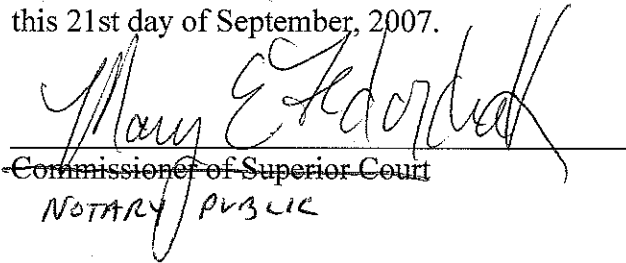 this 21st day of September, 2007.
Mary E Fedorchak
Commissioner of Superior Court
NOTARY PUBLIC